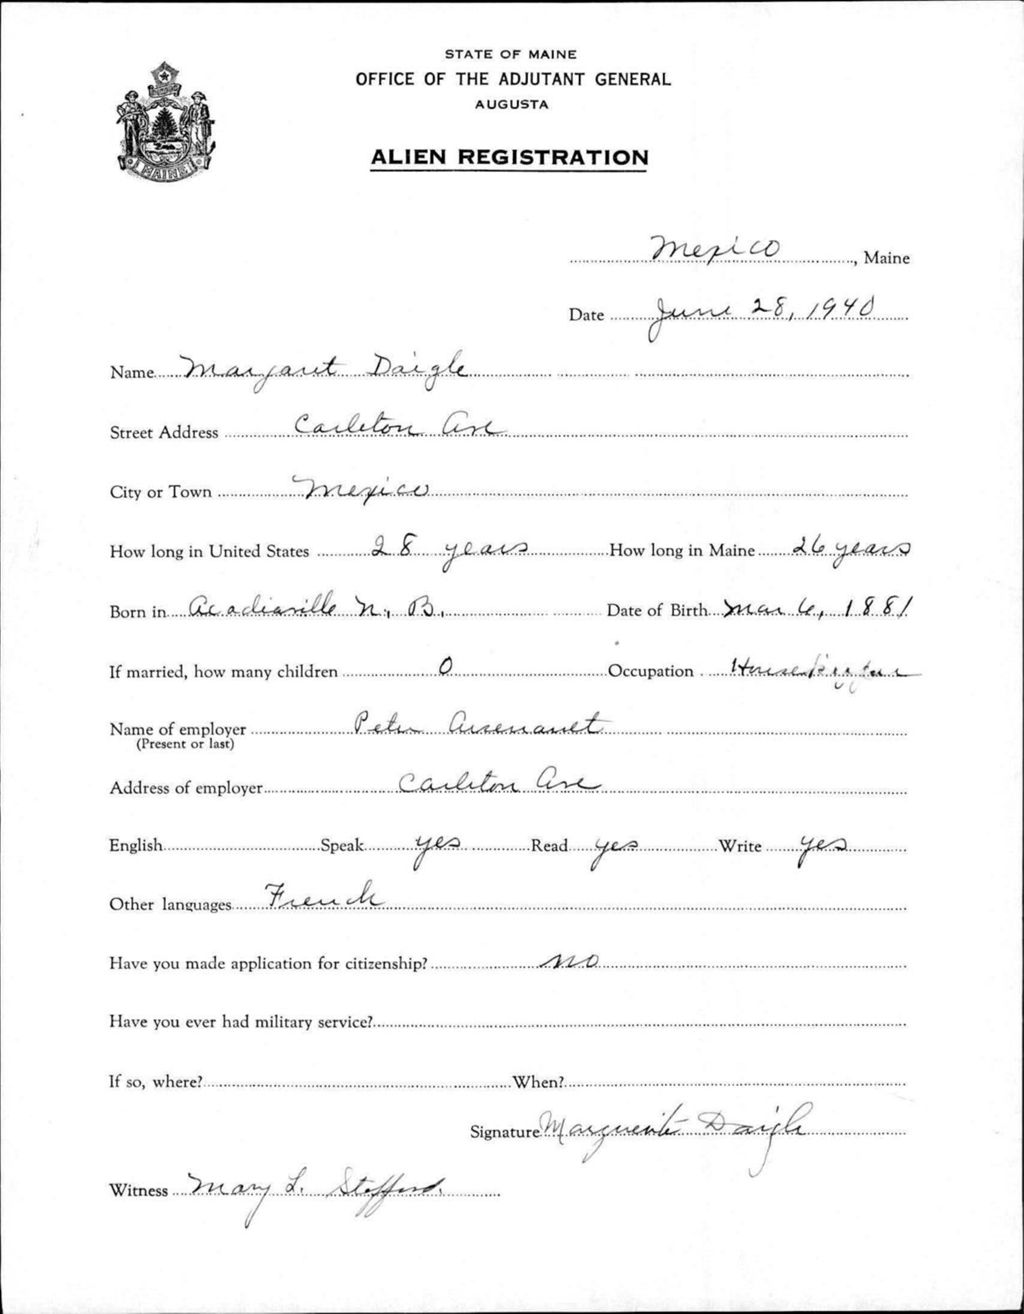 STATE OF MAINE
OFFICE OF THE ADJUTANT GENERAL
AUGUSTA
ALIEN REGISTRATION
MAINE
Mexico, Maine
Date June 28, 1940
Name Margaret Daigle
Street Address Carleton Ave
City or Town Mexico
How long in United States 28 years How long in Maine 26 years
Born in Acadiaville N, B, Date of Birth Mar 6, 1881
If married, how many children 0 Occupation
Name of employer Peter Arsenault
(Present or last)
Address of employer Carleton Ave
English Speak yes Read yes Write yes
Other languages French
Have you made application for citizenship? no
Have you ever had military service?
If so, where? When?
Signature Marguerite Daigle
Witness Mary L. Stafford.